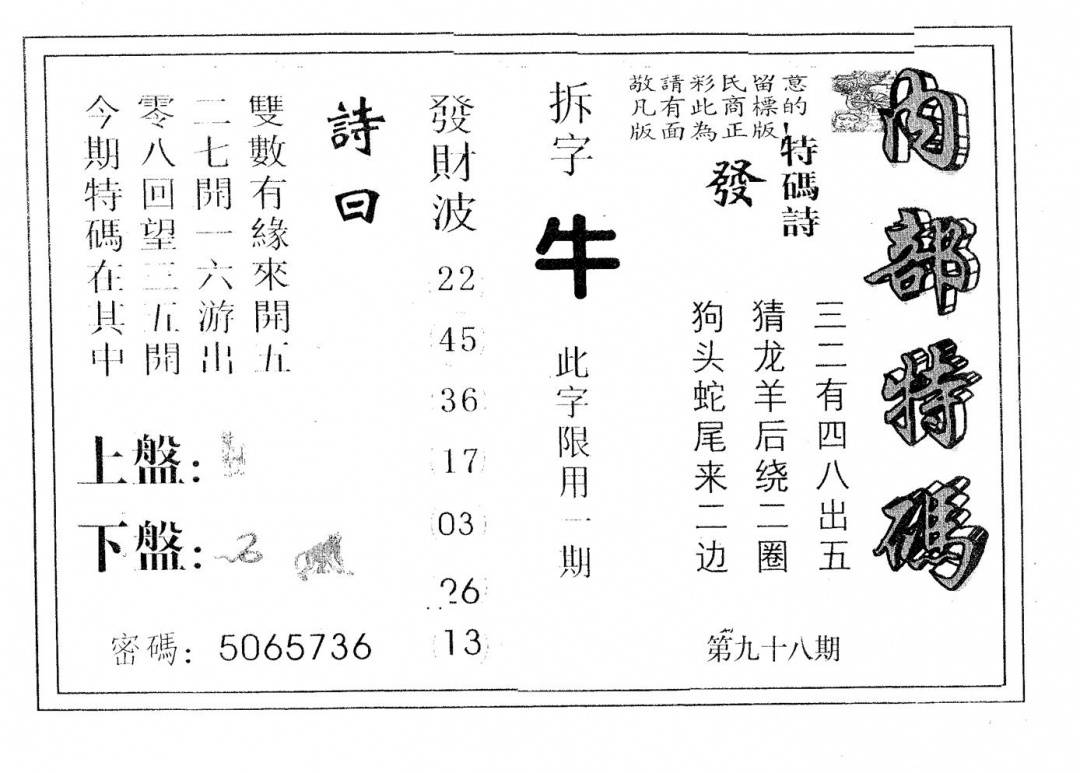 內部特碼
敬請彩民留意
凡有此商標的
版面為正版
特碼詩
發
三二有四八出五
猜龙羊后绕二圈
狗头蛇尾来二边
第九十八期
拆字
牛
此字限用一期
發財波
22
45
36
17
03
26
13
詩曰
雙數有緣來開五
二七開一六游出
零八回望三五開
今期特碼在其中
上盤:
下盤:
密碼: 5065736